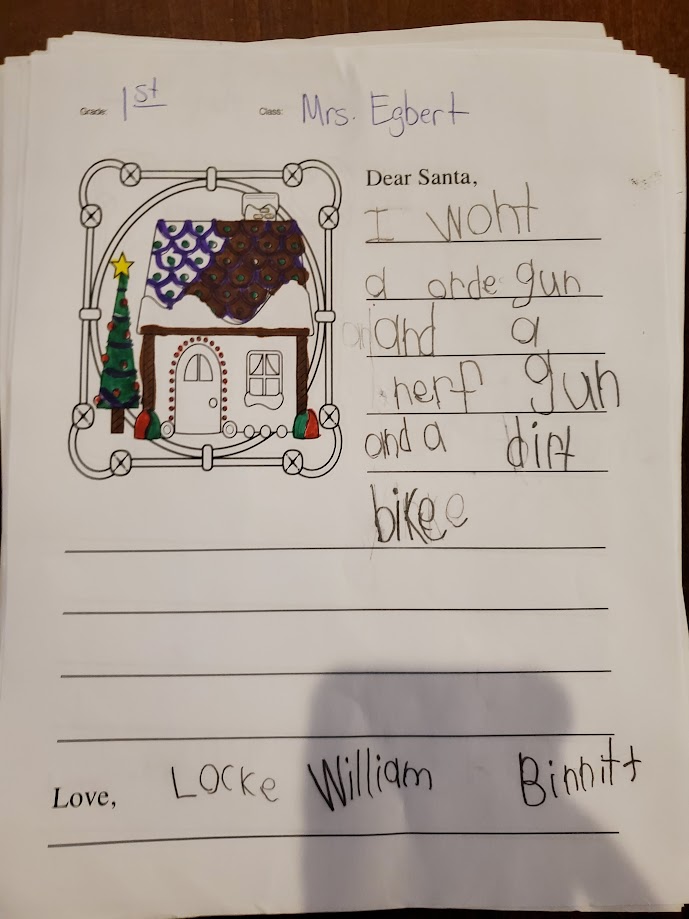 Grade: 1st Class: Mrs. Egbert
Dear Santa,
I wont
a orde gun
and a
nerf gun
and a dirt
bike
Love, Locke William Binnitt